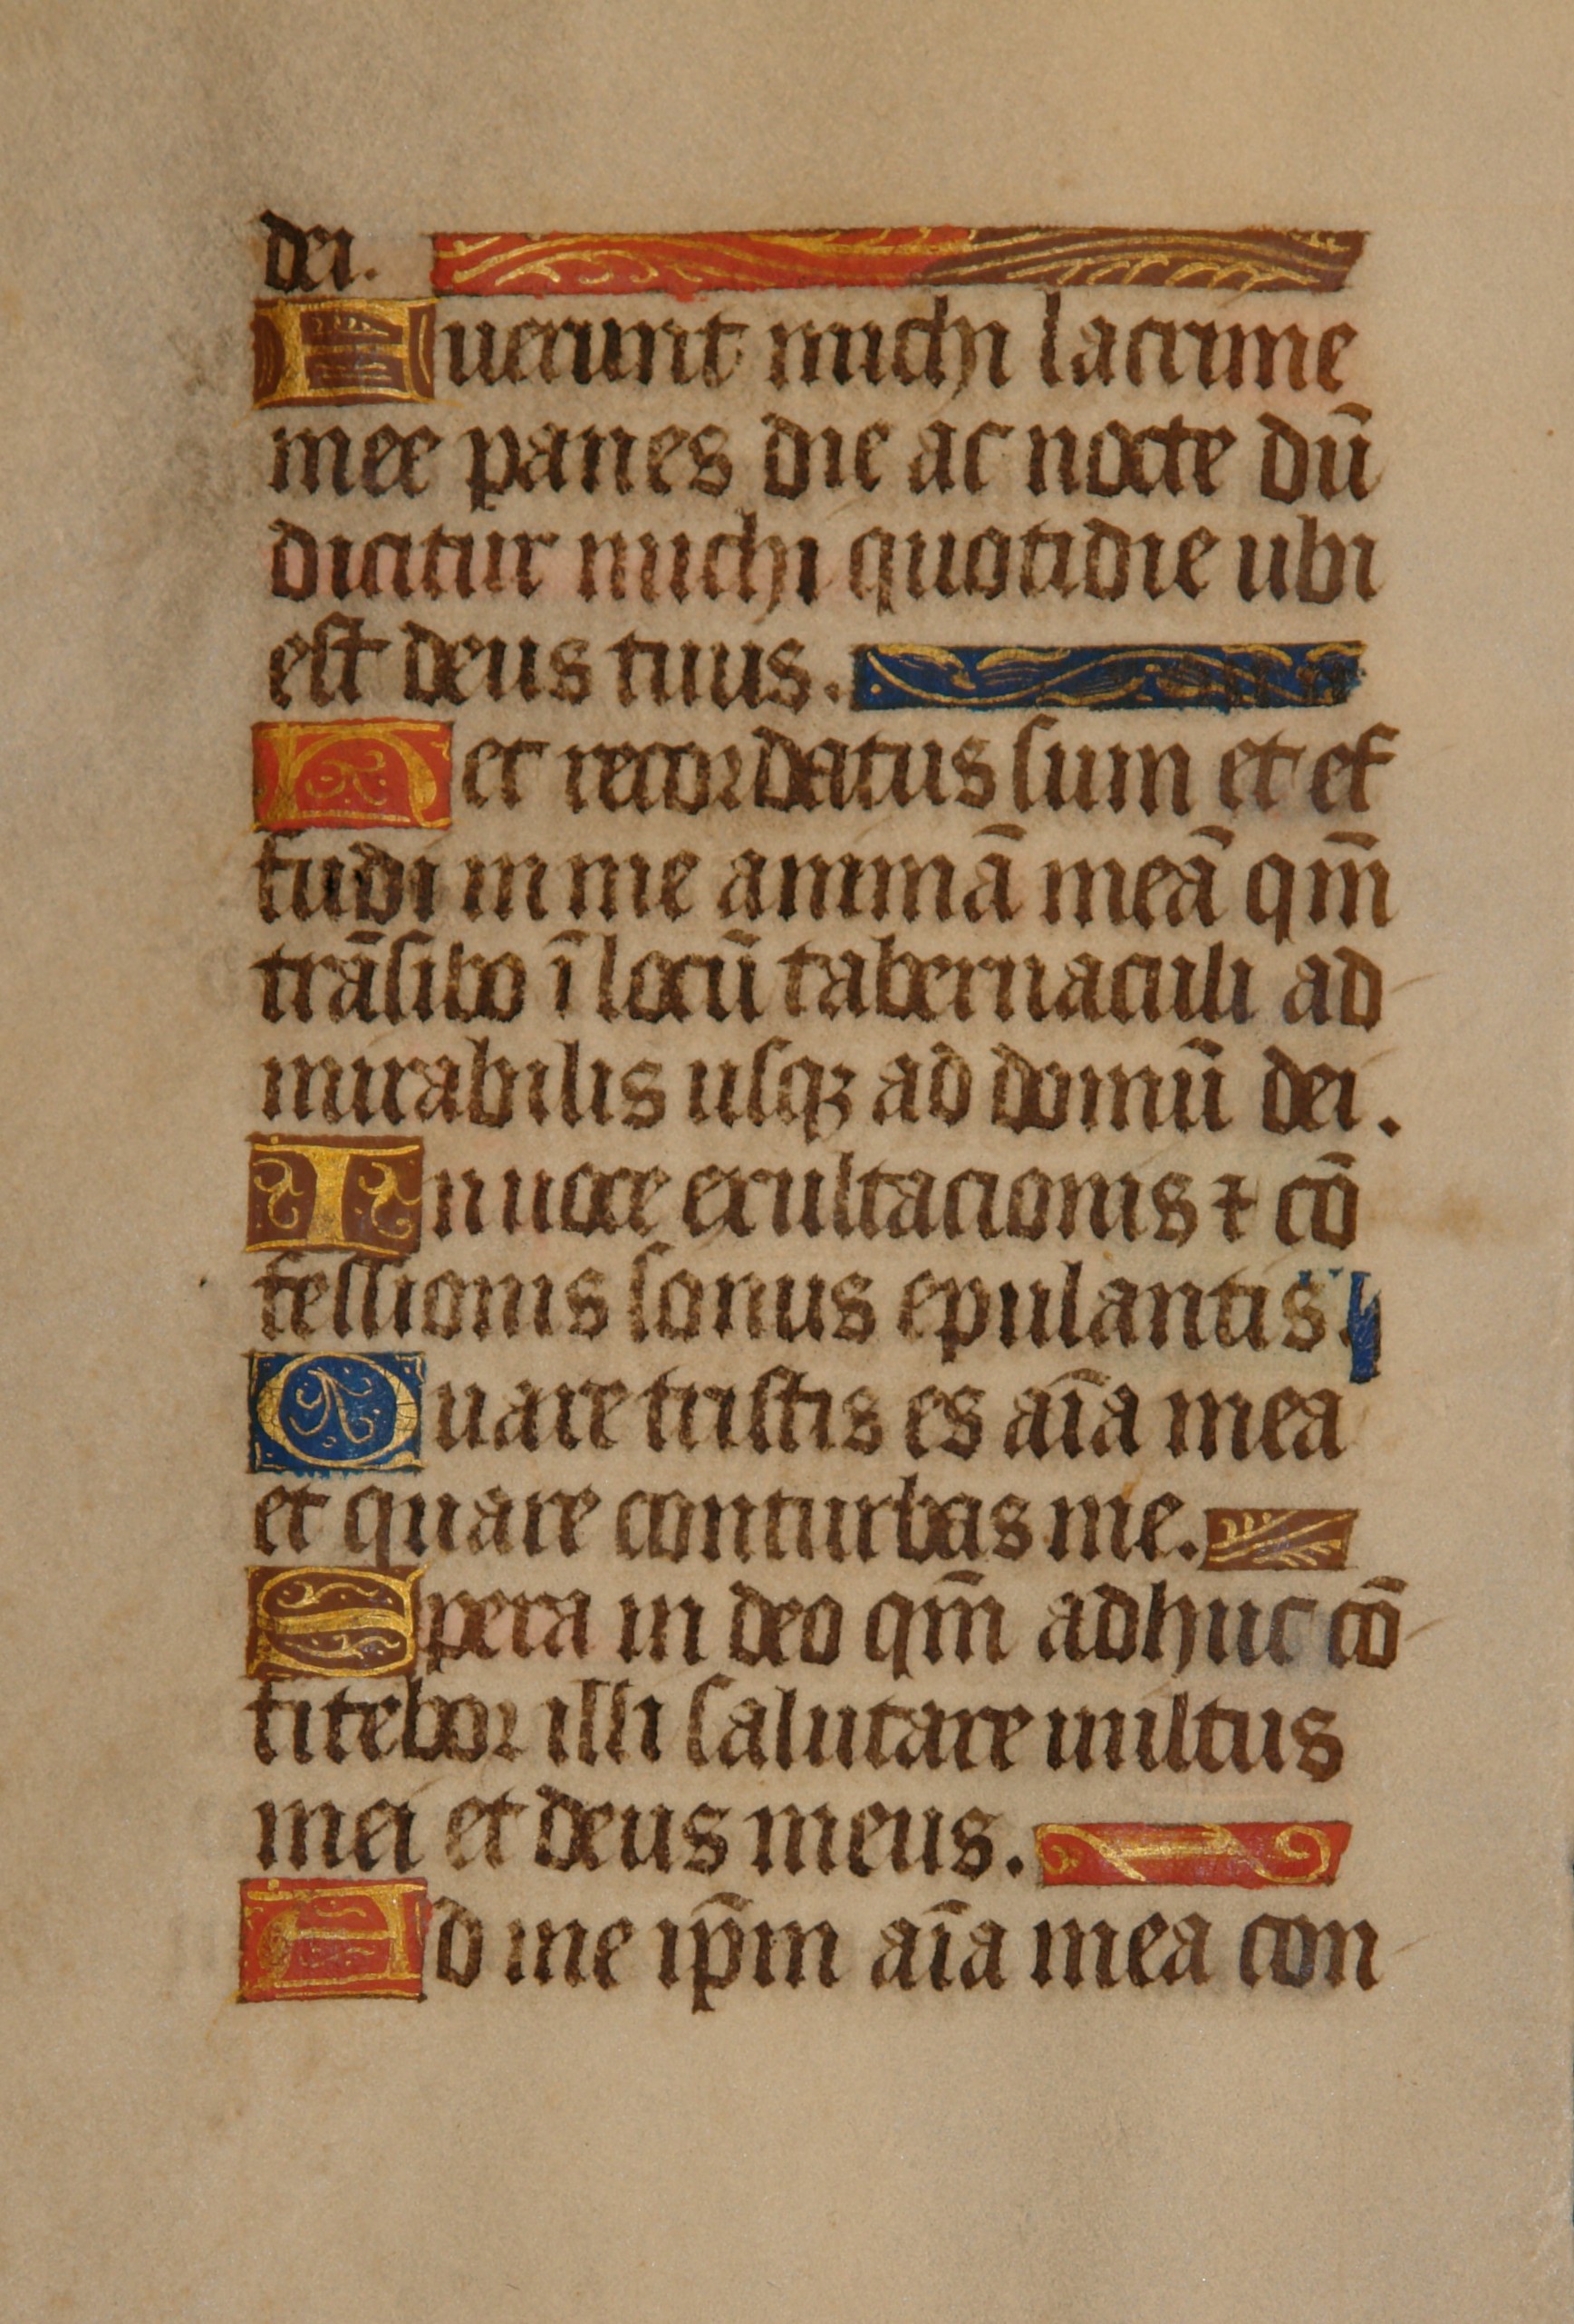 dei.
Fuerunt michi lacrime
mee panes die ac nocte dū
dicitur michi quotidie ubi
est deus tuus.
Hec recordatus sum et ef
fudi in me animā meā qm̄
trāsibo ī locū tabernaculi ad
mirabilis usqꝫ ad domū dei.
In uoce exultacionis ⁊ cō
fessionis sonus epulantis.
Quare tristis es aīa mea
et quare conturbas me.
Spera in deo qm̄ adhuc cō
fitebor illi salutare uultus
mei et deus meus.
Ad me ip̄m aīa mea con